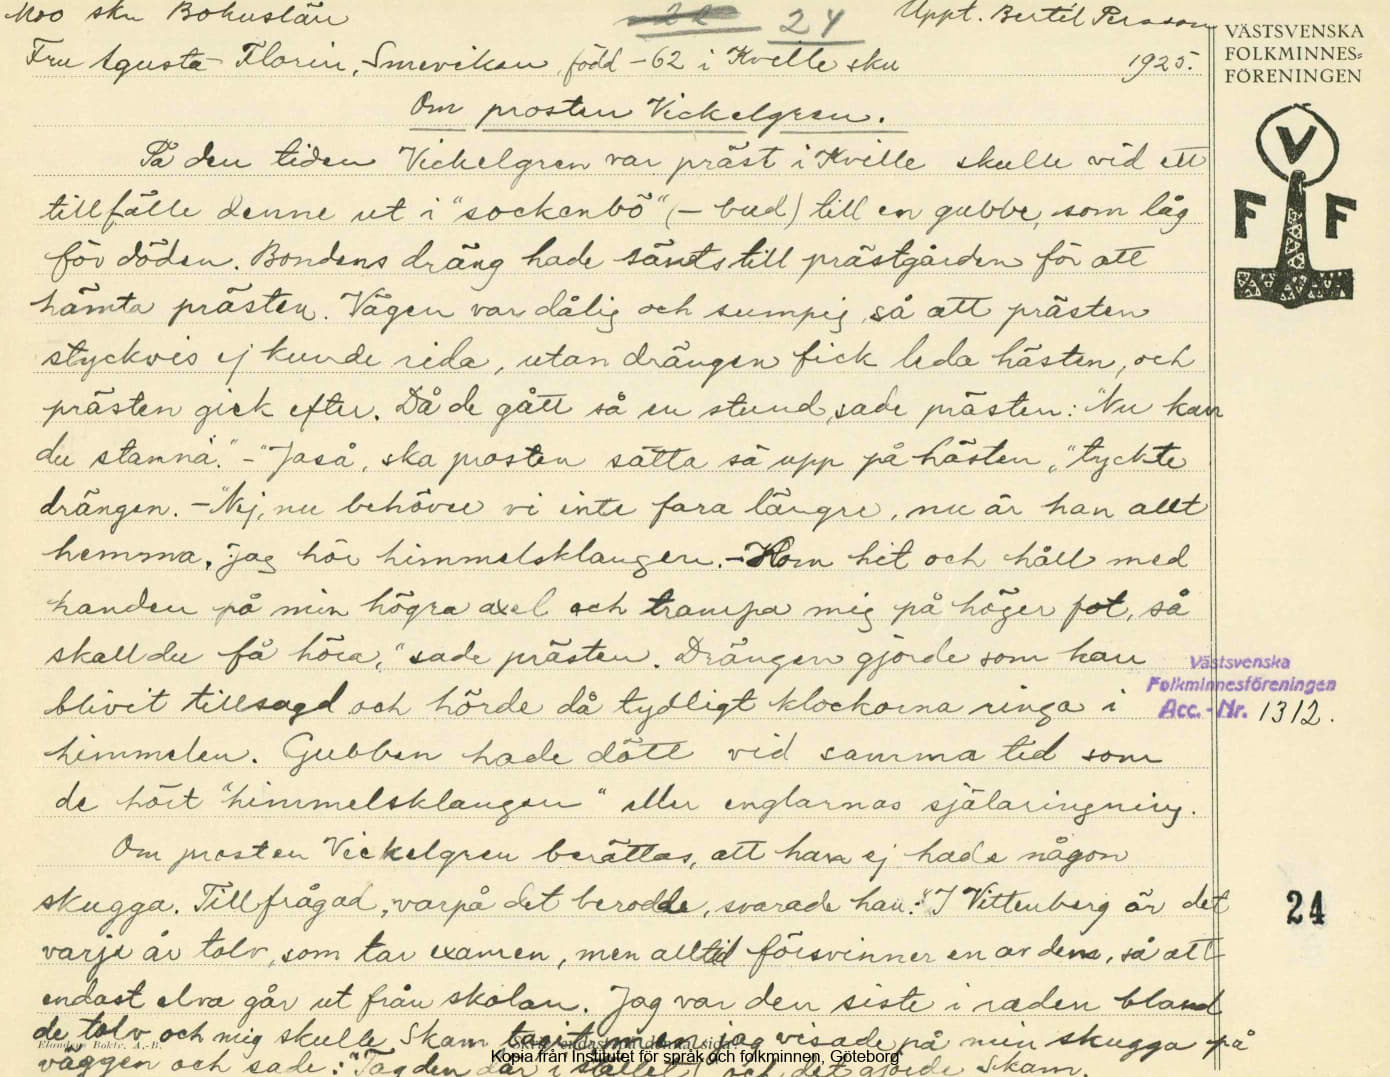 Moo skn Bohuslän
24
Uppt. Bertil Persson
VÄSTSVENSKA
FOLKMINNES-
FÖRENINGEN
Fru Agusta Florin, Smeviken, född -62 i Kville skn
1925.
V
F F
Om prosten Vickelgren.
På den tiden Vickelgren var präst i Kville skulle vid ett
tillfälle denne ut i "sockenbö" (- bud) till en gubbe, som låg
för döden. Bondens dräng hade sänts till prästgården för att
hämta prästen. Vägen var dålig och sumpig, så att prästen
styckvis ej kunde rida, utan drängen fick leda hästen, och
prästen gick efter. Då de gått så en stund, sade prästen: "Nu kan
du stanna." - "Jaså, ska prosten sätta sä upp på hästen," tyckte
drängen. - "Nej, nu behöver vi inte fara längre, nu är han allt
hemma, jag hör himmelsklangen. - Kom hit och håll med
handen på min högra axel och trampa mig på höger fot, så
skall du få höra," sade prästen. Drängen gjorde som han
blivit tillsagd och hörde då tydligt klockorna ringa i
himmelen. Gubben hade dött vid samma tid som
de hört "himmelsklangen" eller englarnas själaringning.
Västsvenska
Folkminnesföreningen
Acc.-Nr. 1312.
Om prosten Vickelgren berättas, att han ej hade någon
skugga. Tillfrågad, varpå det berodde, svarade han: "I Vittenberg är det
varje år tolv, som tar examen, men alltid försvinner en av dem, så att
endast elva går ut från skolan. Jag var den siste i raden bland
de tolv och mig skulle Skam tagit, men jag visade på min skugga på
väggen och sade: "Tag den där i stället!" och det gjorde Skam.
24
Elanders Boktr. A.-B.
Kopia från Institutet för språk och folkminnen, Göteborg